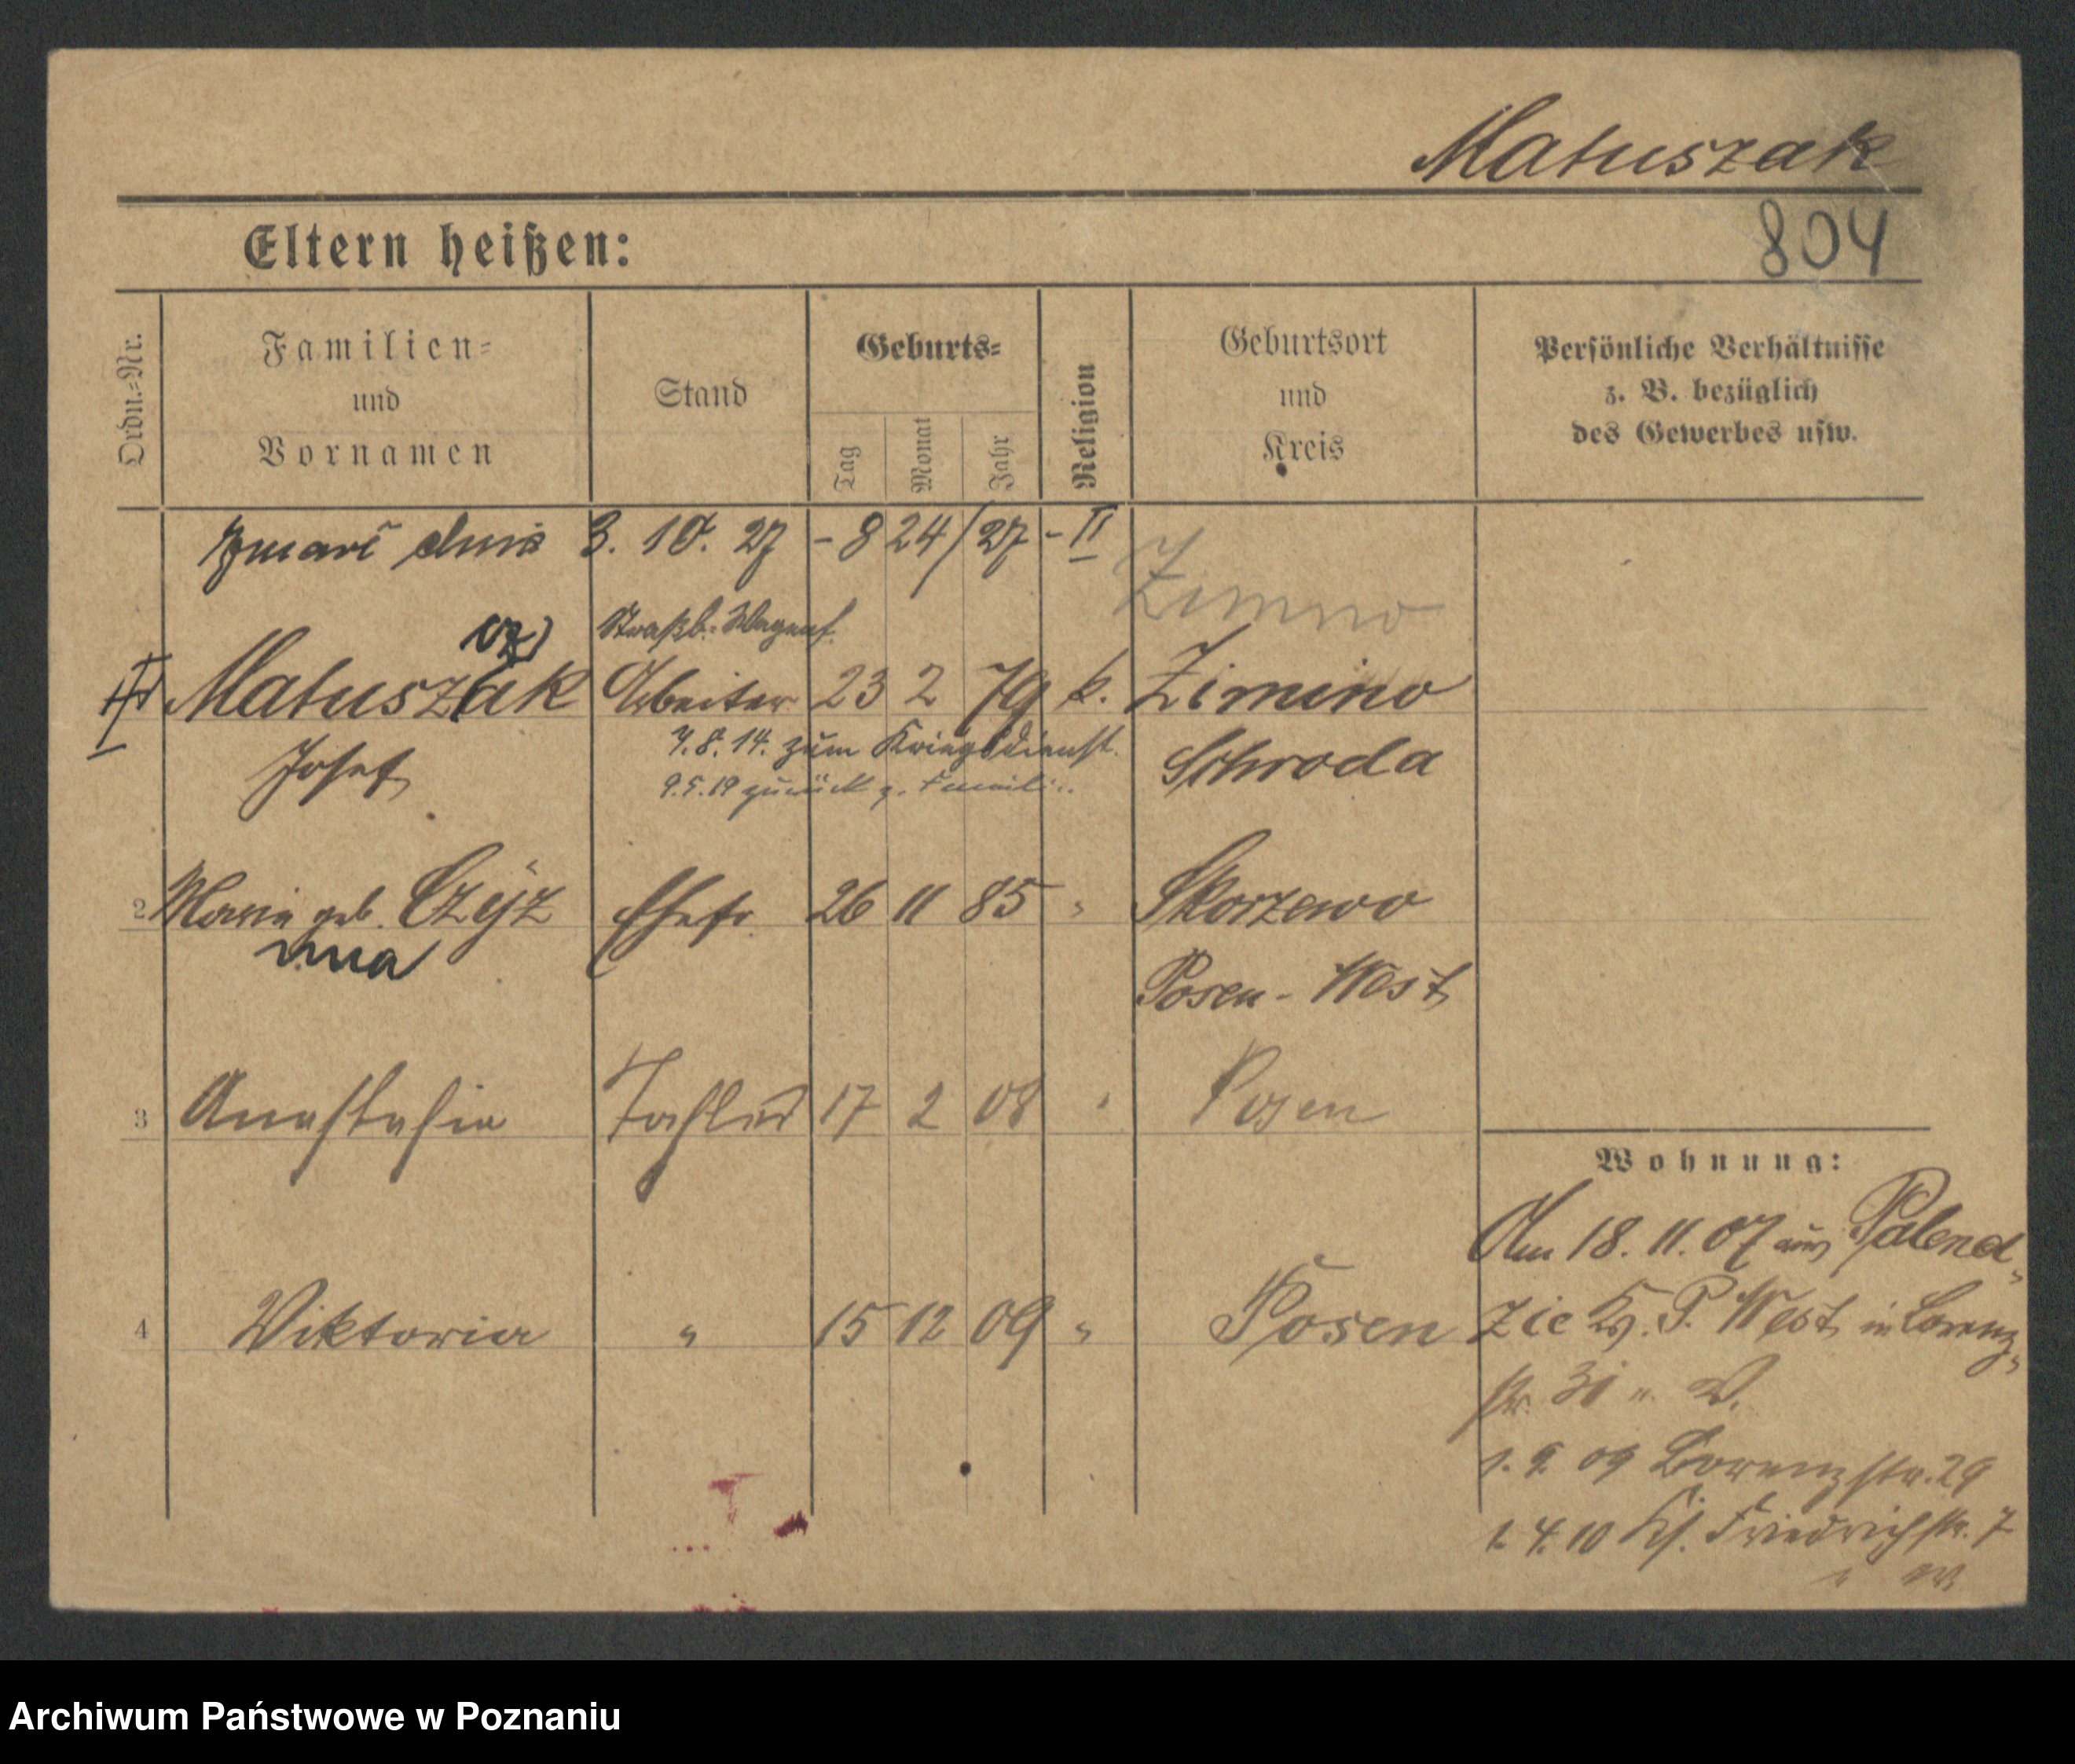 Matuszak
Eltern heißen:
804
Ordn.=Nr.
Familien=
und
Vornamen
Stand
Geburts=
Tag
Monat
Jahr
Religion
Geburtsort
und
Kreis
Persönliche Verhältnisse
z. B. bezüglich
des Gewerbes usw.
zmarł dnia 3. 10. 27 - 824/27 - II
Zimno
Straßb.
Matuszak Arbeiter 23 2 79 k. Zimino
Josef
7. 8. 14. zum Kriegsdienst.
9. 5. 19 zurück z. Famili
Schroda
2 Maria geb. Czyż Ehefr. 26 11 85 " Skorzewo
Posen - West
3 Anastasia Tochter 17 2 08 " Posen
Wohnung:
Am 18. 11. 07 aus Palend=
4 Viktoria " 15 12 09 " Posen
zie Kr. P. West in Lorenz=
str. 31
1. 9. 09 Lorenzstr. 29
1. 4. 10 Friedrichstr. 7
Archiwum Państwowe w Poznaniu